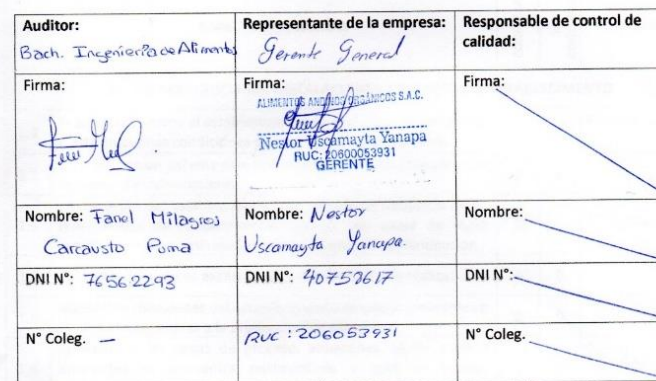 Auditor:
Bach. Ingeniería de Alimentos
Representante de la empresa:
Gerente General
Responsable de control de
calidad:
Firma:
Firma:
ALIMENTOS ANDINOS ORGÁNICOS S.A.C.
Nestor Uscamayta Yanapa
RUC: 20600053931
GERENTE
Firma:
Nombre: Fanol Milagros
Carcausto Puma
Nombre: Nestor
Uscamayta Yanapa.
Nombre:
DNI N°: 76562293
DNI N°: 40753617
DNI N°:
N° Coleg. —
RUC: 206053931
N° Coleg.